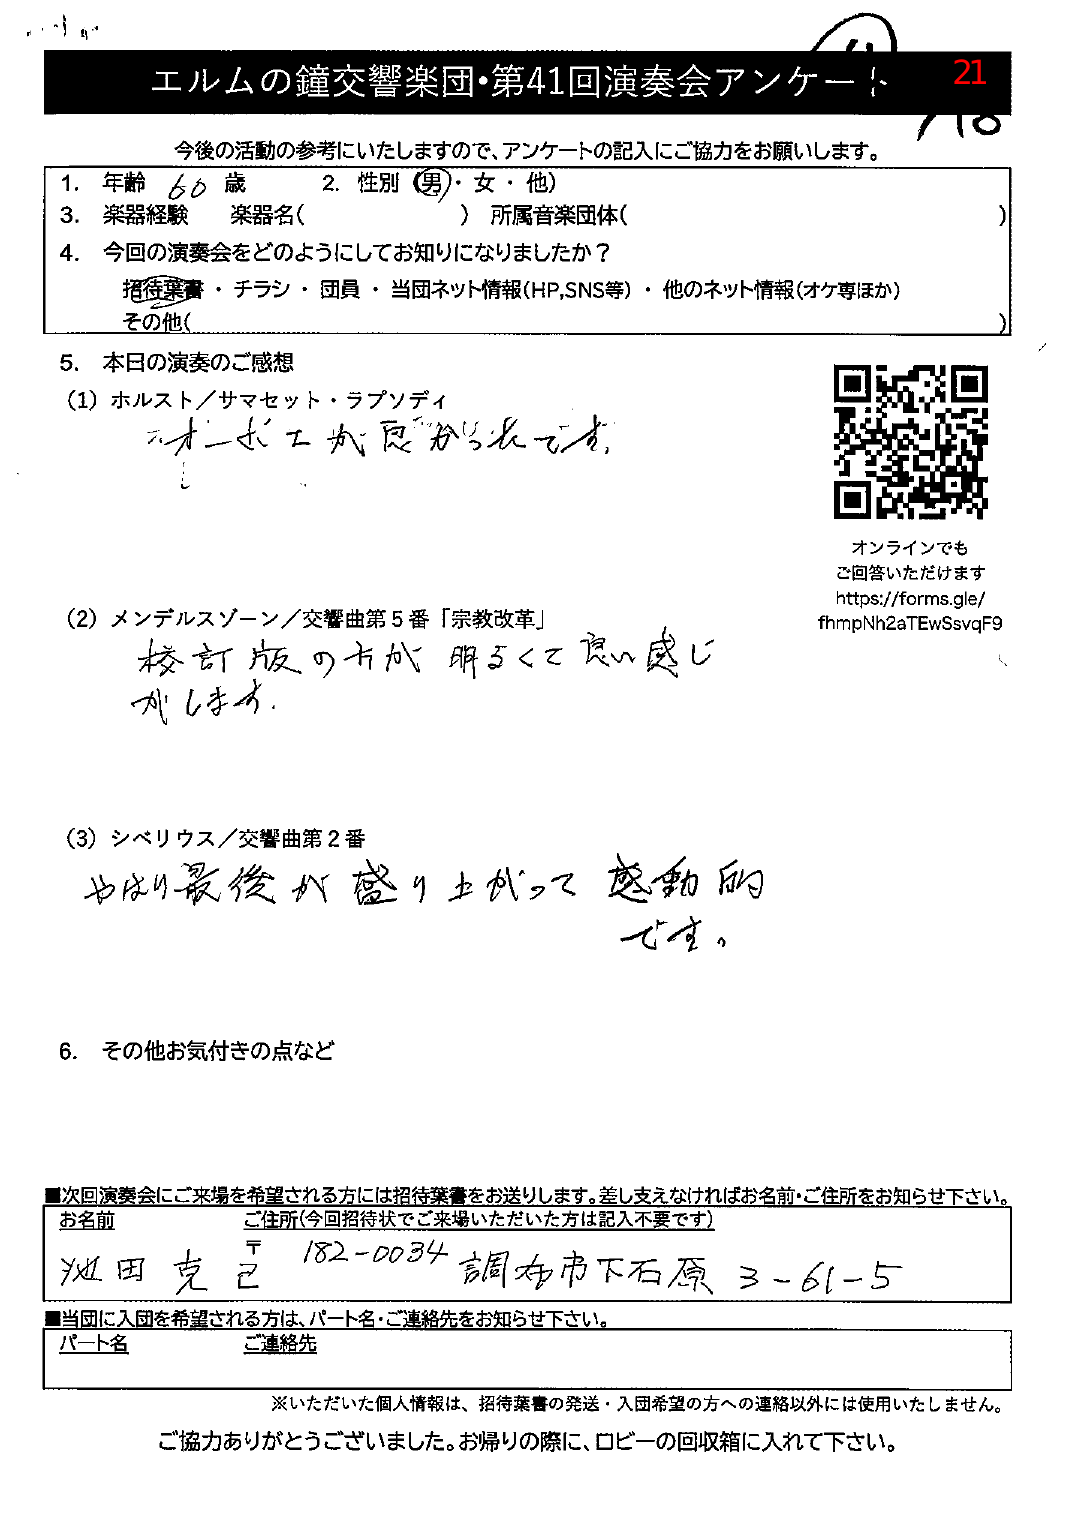 エルムの鐘交響楽団・第41回演奏会アンケート
21
今後の活動の参考にいたしますので、アンケートの記入にご協力をお願いします。
1. 年齢 60 歳 2. 性別 (男・女・他)
3. 楽器経験 楽器名( ) 所属音楽団体( )
4. 今回の演奏会をどのようにしてお知りになりましたか？
招待葉書・チラシ・団員・当団ネット情報(HP,SNS等)・他のネット情報(オケ専ほか)
その他( )
5. 本日の演奏のご感想
(1) ホルスト／サマセット・ラプソディ
オーボエが良かったです。
オンラインでも
ご回答いただけます
https://forms.gle/
fhmpNh2aTEwSsvqF9
(2) メンデルスゾーン／交響曲第５番「宗教改革」
校訂版の方が明るくて良い感じ
がします.
(3) シベリウス／交響曲第２番
やはり最後が盛り上がって感動的
です。
6. その他お気付きの点など
■次回演奏会にご来場を希望される方には招待葉書をお送りします。差し支えなければお名前・ご住所をお知らせ下さい。
お名前 ご住所(今回招待状でご来場いただいた方は記入不要です)
池田克己 〒 182-0034 調布市下石原 3-61-5
■当団に入団を希望される方は、パート名・ご連絡先をお知らせ下さい。
パート名 ご連絡先
※いただいた個人情報は、招待葉書の発送・入団希望の方への連絡以外には使用いたしません。
ご協力ありがとうございました。お帰りの際に、ロビーの回収箱に入れて下さい。